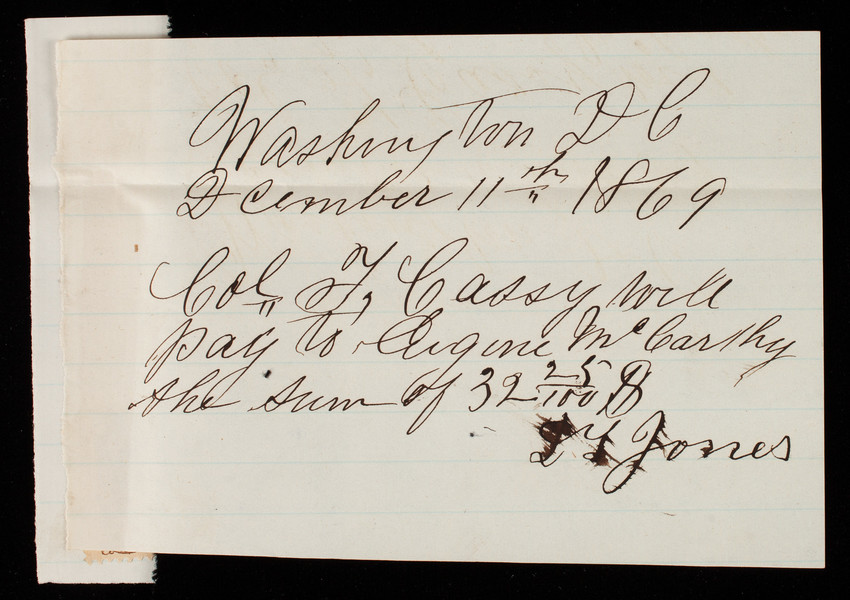 Washington D C
Dcember 11th 1869
Col T, Cassy will
pay to Eugene McCarthy
the sum of 32 25/100 $
Jones